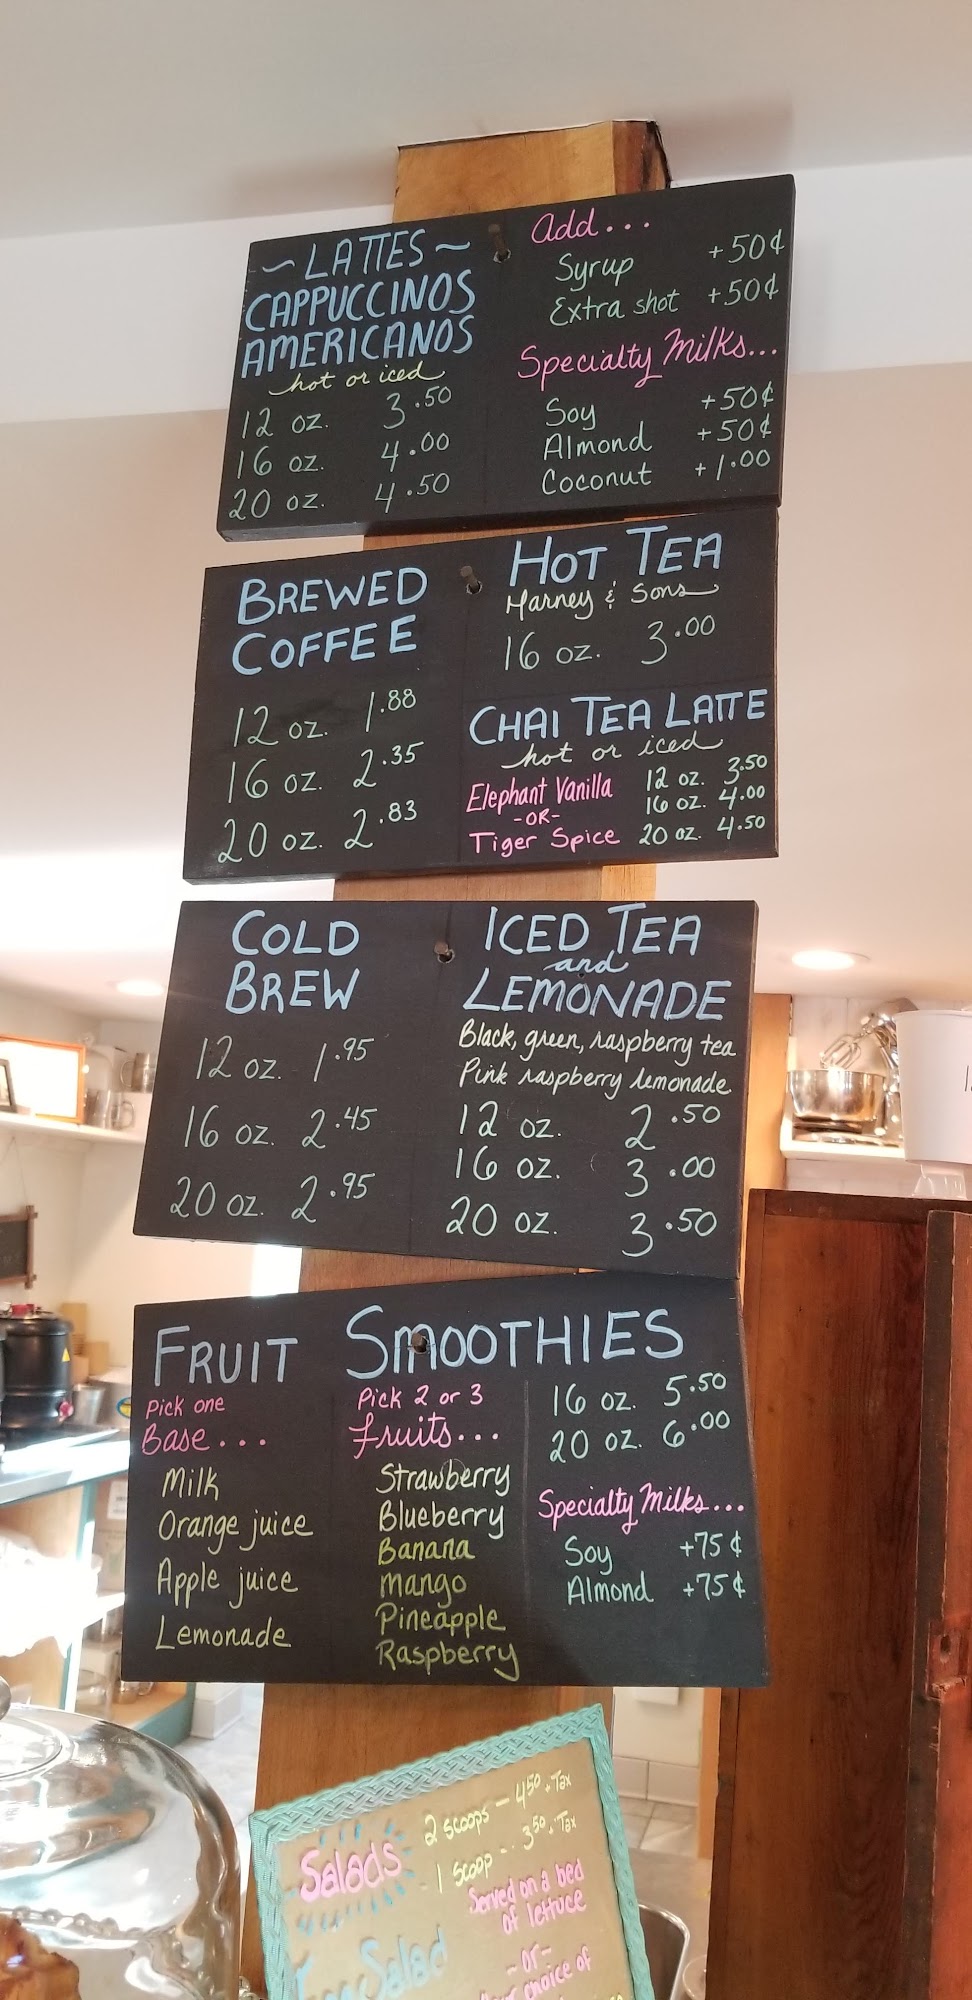 ~ LATTES ~
CAPPUCCINOS
AMERICANOS
hot or iced
12 oz. 3.50
16 oz. 4.00
20 oz. 4.50
Add...
Syrup +50¢
Extra shot +50¢
Specialty Milks...
Soy +50¢
Almond +50¢
Coconut +1.00
BREWED
COFFEE
12 oz. 1.88
16 oz. 2.35
20 oz. 2.83
HOT TEA
Harney & Sons
16 oz. 3.00
CHAI TEA LATTE
hot or iced
Elephant Vanilla
-OR-
Tiger Spice
12 oz. 3.50
16 oz. 4.00
20 oz. 4.50
COLD
BREW
12 oz. 1.95
16 oz. 2.45
20 oz. 2.95
ICED TEA
and
LEMONADE
Black, green, raspberry tea
Pink raspberry lemonade
12 oz. 2.50
16 oz. 3.00
20 oz. 3.50
FRUIT SMOOTHIES
Pick one
Base...
Milk
Orange juice
Apple juice
Lemonade
Pick 2 or 3
Fruits...
Strawberry
Blueberry
Banana
Mango
Pineapple
Raspberry
16 oz. 5.50
20 oz. 6.00
Specialty Milks...
Soy +75¢
Almond +75¢
Salads
2 scoops - 4.50 + Tax
1 scoop - 3.50 + Tax
Served on a bed
of lettuce
-or-
choice of
Salad